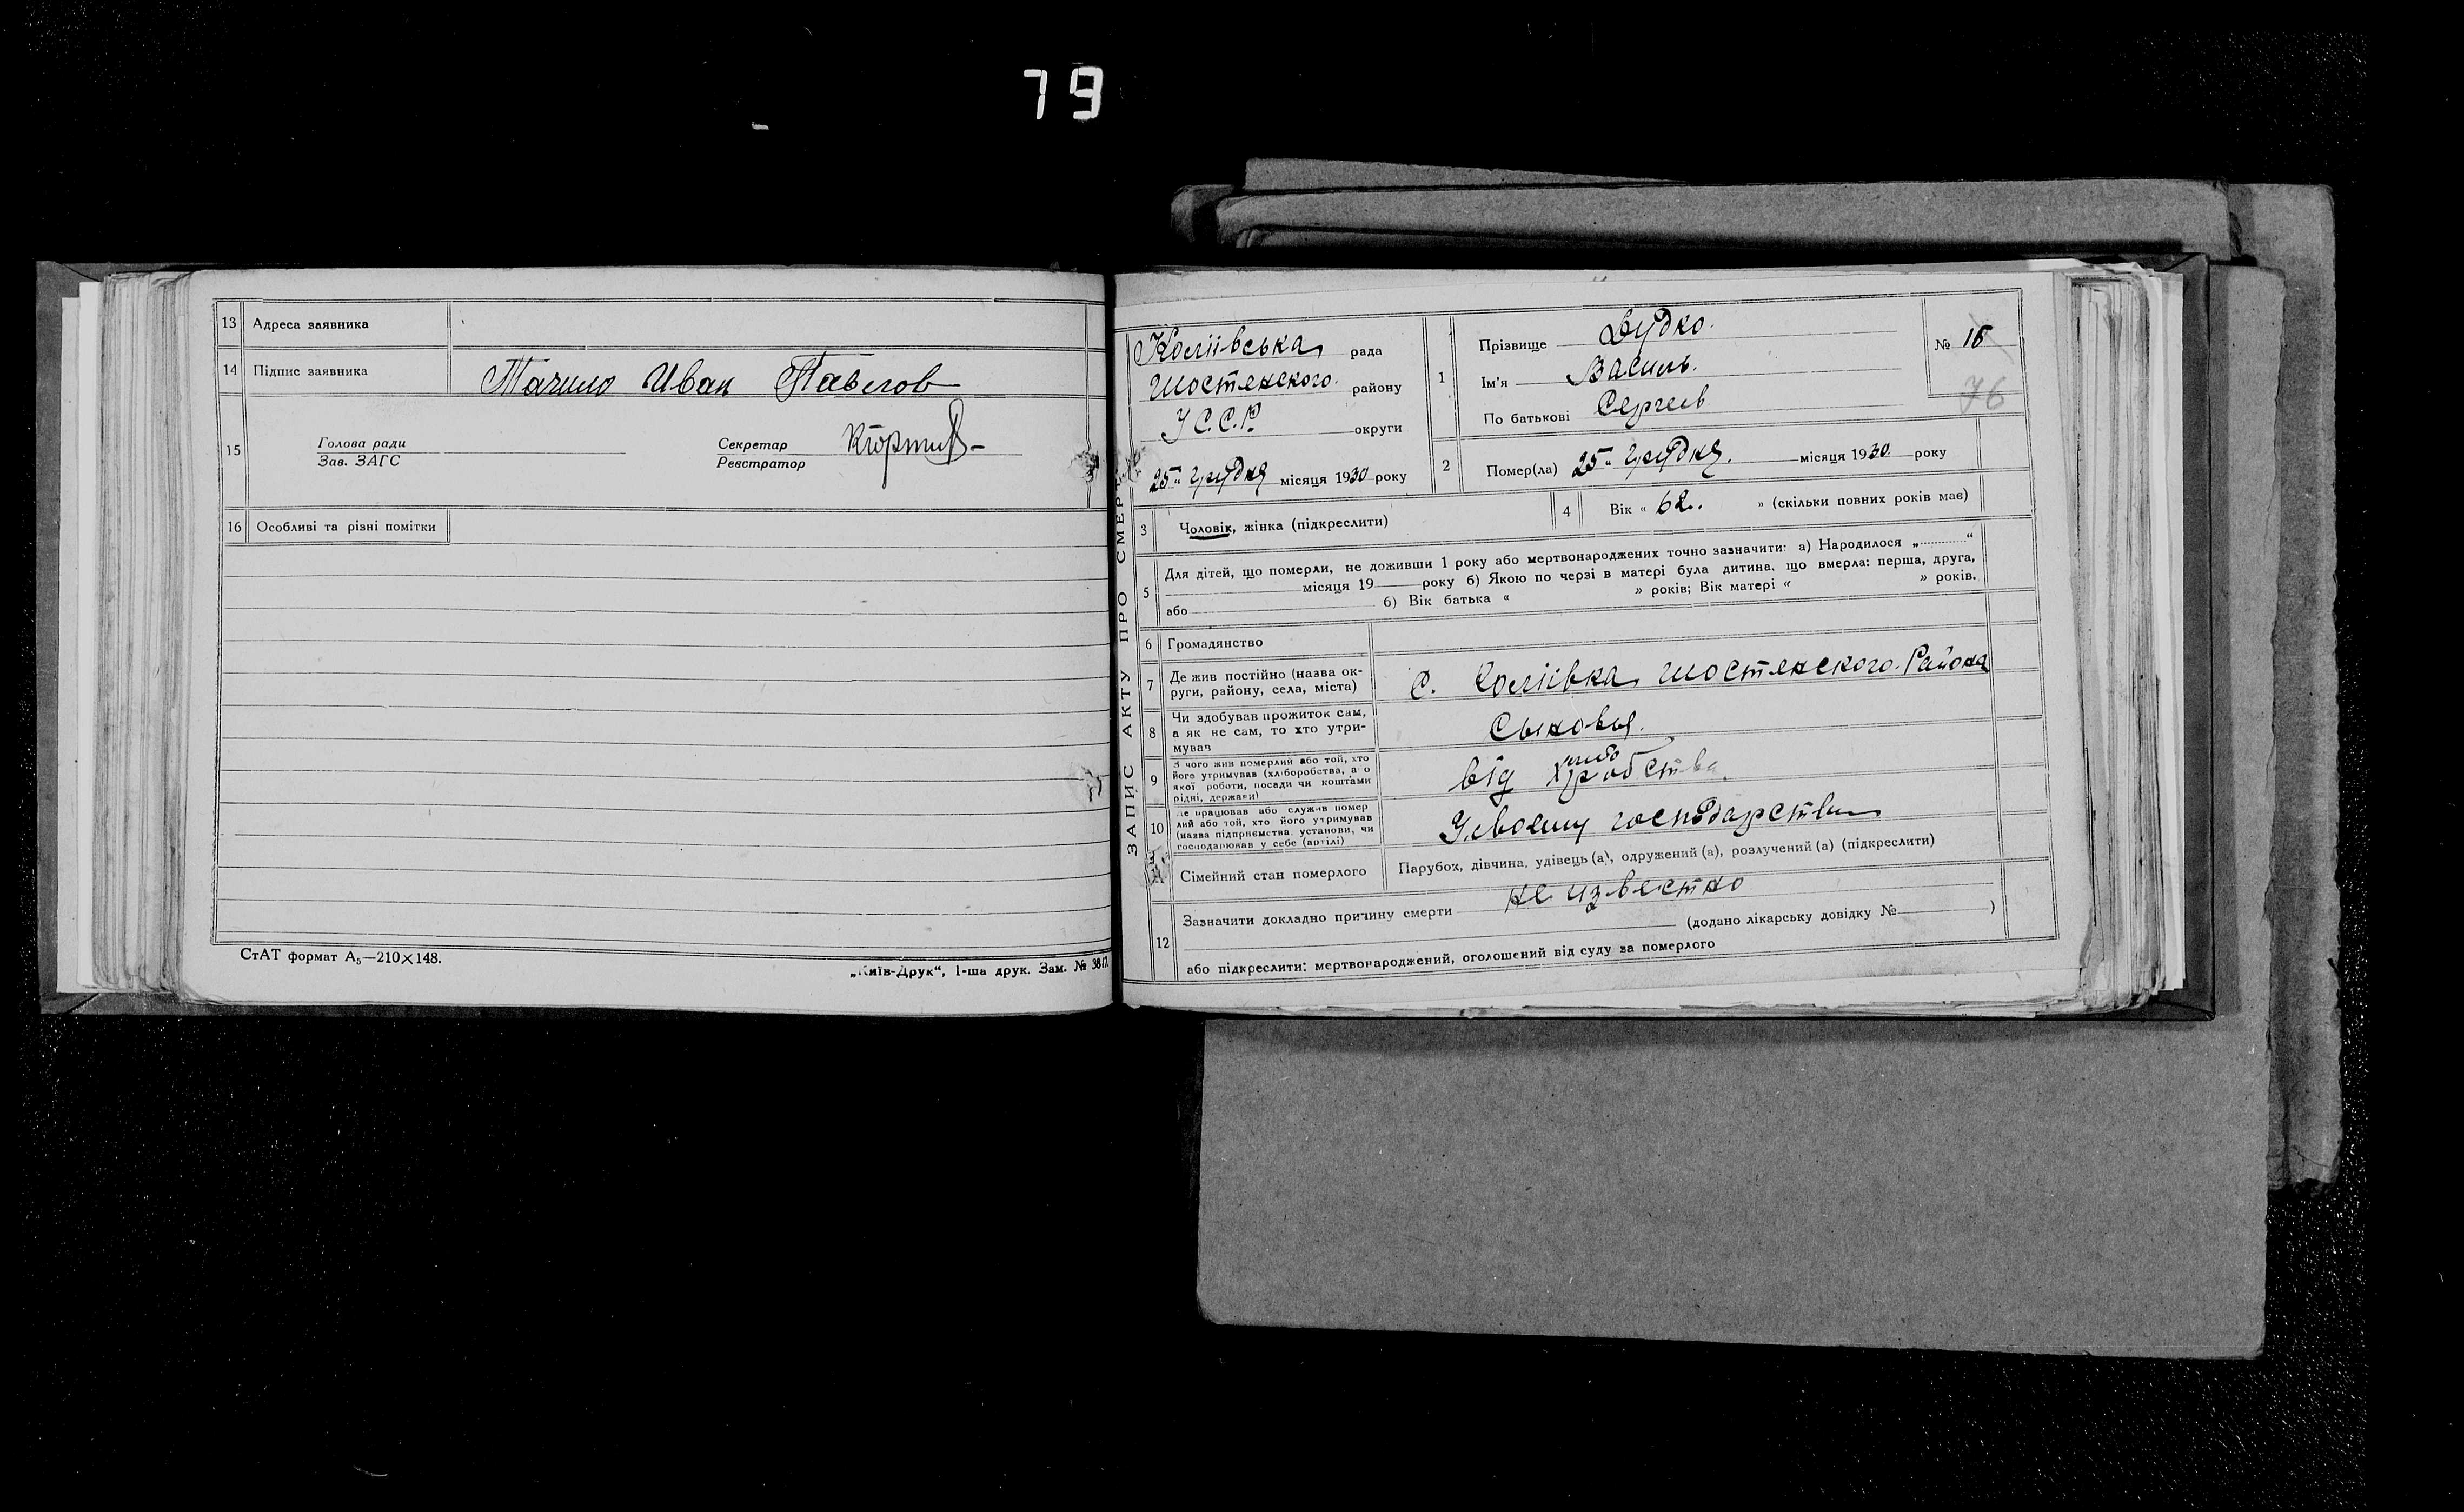 79
13 Адреса заявника
14 Підпис заявника Тачило Иван Павлов
15 Голова ради
Зав. ЗАГС
Секретар
Реєстратор
16 Особливі та різні помітки
СтАТ формат А₅—210×148.
„Київ-Друк“, 1-ша друк. Зам. № 3817.
ЗАПИС АКТУ ПРО СМЕРТЬ
рада
Шостенского району
У С.С.Р. округи
25" грудня місяця 1930 року
1 Прізвище Дудко.
Ім'я Василь.
По батькові Сергеев
№ 16
76
2 Помер(ла) 25" грудня. місяця 1930 року
3 Чоловік, жінка (підкреслити)
4 Вік « 62. » (скільки повних років має)
5 Для дітей, що померли, не доживши 1 року або мертвонароджених точно зазначити: а) Народилося „............“
місяця 19 року б) Якою по черзі в матері була дитина, що вмерла: перша, друга,
або б) Вік батька « » років; Вік матері « » років.
6 Громадянство
7 Де жив постійно (назва ок-
руги, району, села, міста)
С. Шостенского. Района
8 Чи здобував прожиток сам,
а як не сам, то хто утри-
мував
Сыновья.
9 З чого жив померлий або той, хто
його утримував (хліборобства, або
якої роботи, посади чи коштами
рідні, держави)
від хлиборобства.
10 Де працював або служив помер
лий або той, хто його утримував
(назва підприємства, установи, чи
господарював у себе (артілі)
У своему господарстви
11 Сімейний стан померлого
Парубок, дівчина, удівець (а), одружений (а), розлучений (а) (підкреслити)
12 Зазначити докладно причину смерти не известно
(додано лікарську довідку № )
або підкреслити: мертвонароджений, оголошений від суду за померлого